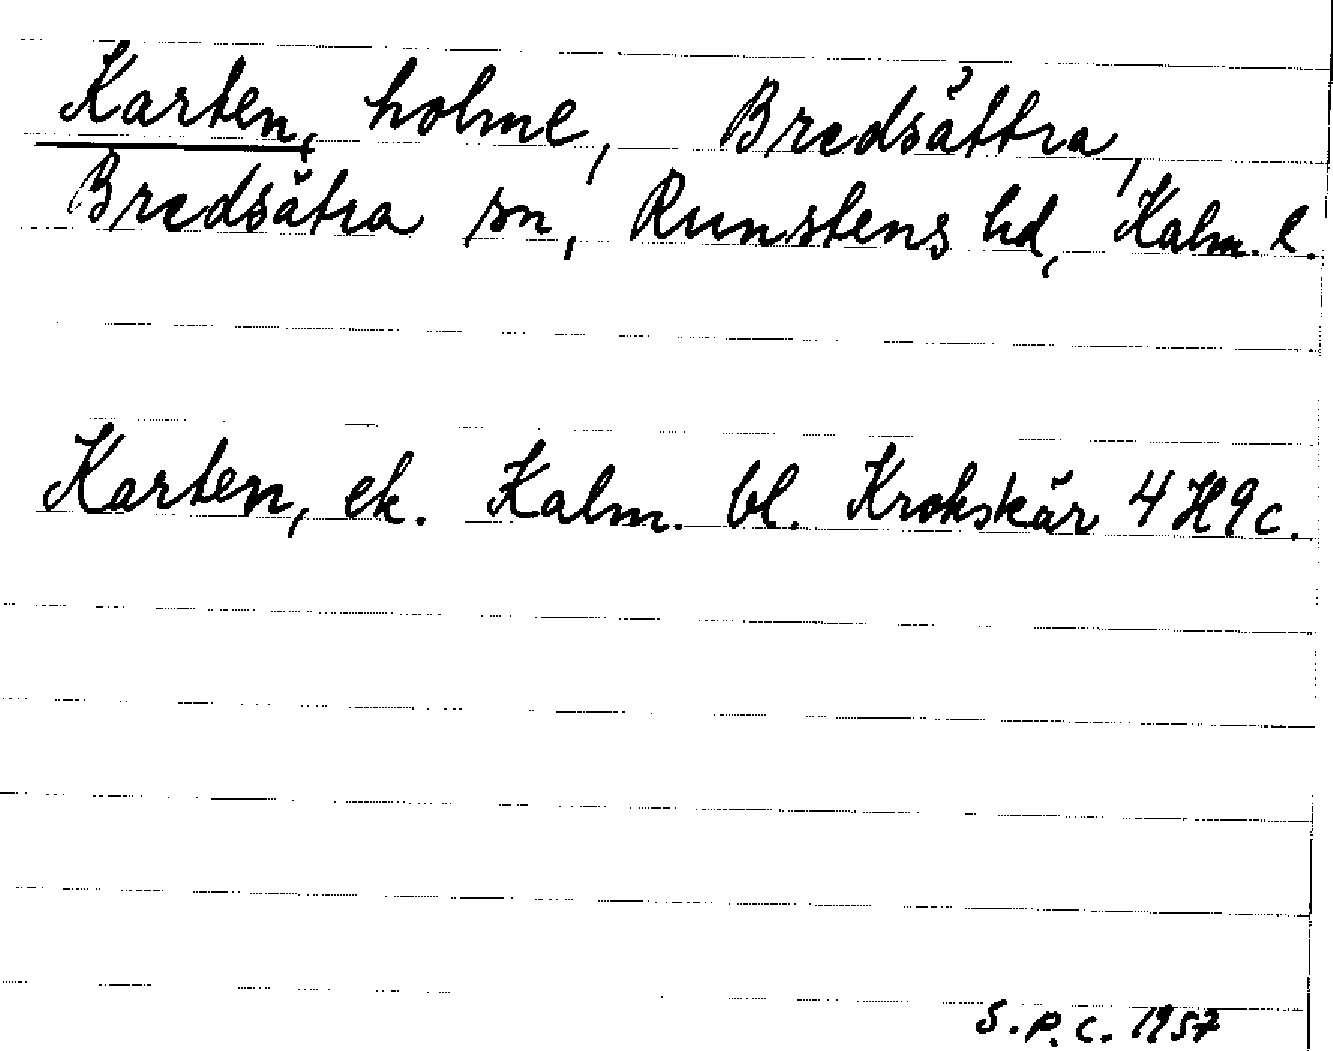 Karten, holme, Bredsättra,
Bredsätra sn, Runstens hd, Kalm. l.
Karten, ek. Kalm. bl. Krokskär 4H9c.
S.P.C. 1957